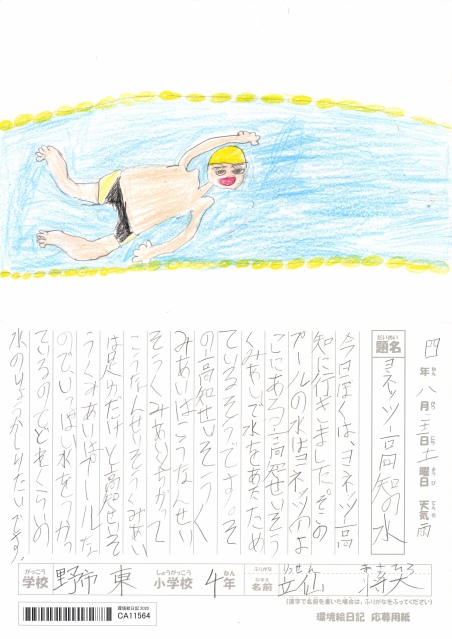 四年八月 日土曜日天気雨
だいめい
題名 ヨネッツ高知の水
今日ぼくは、ヨネッツ高
知に行きました。その
プールの水はヨネッツのよ
こにある高知せいそう
くみあいで水をあたため
ているそうです。そ
の高知せいそうく
みあいはこうなんせい
そうくみあいとちがって
こうなんせいそうくみあい
は足ゆだけど高知せいそ
うくみあいはプールだ
ので、いっぱい水をつかっ
ているのでどれくらいの
水のりょうかしりたいです。
がっこう 学校 野市東 しょうがっこう 小学校 4 ねん 年
ふりがな りっせん まさひろ
なまえ 名前 立仙 将大
(漢字で名前を書いた場合は、ふりがなをふってください)
環境絵日記2020
CA11564
環境絵日記 応募用紙